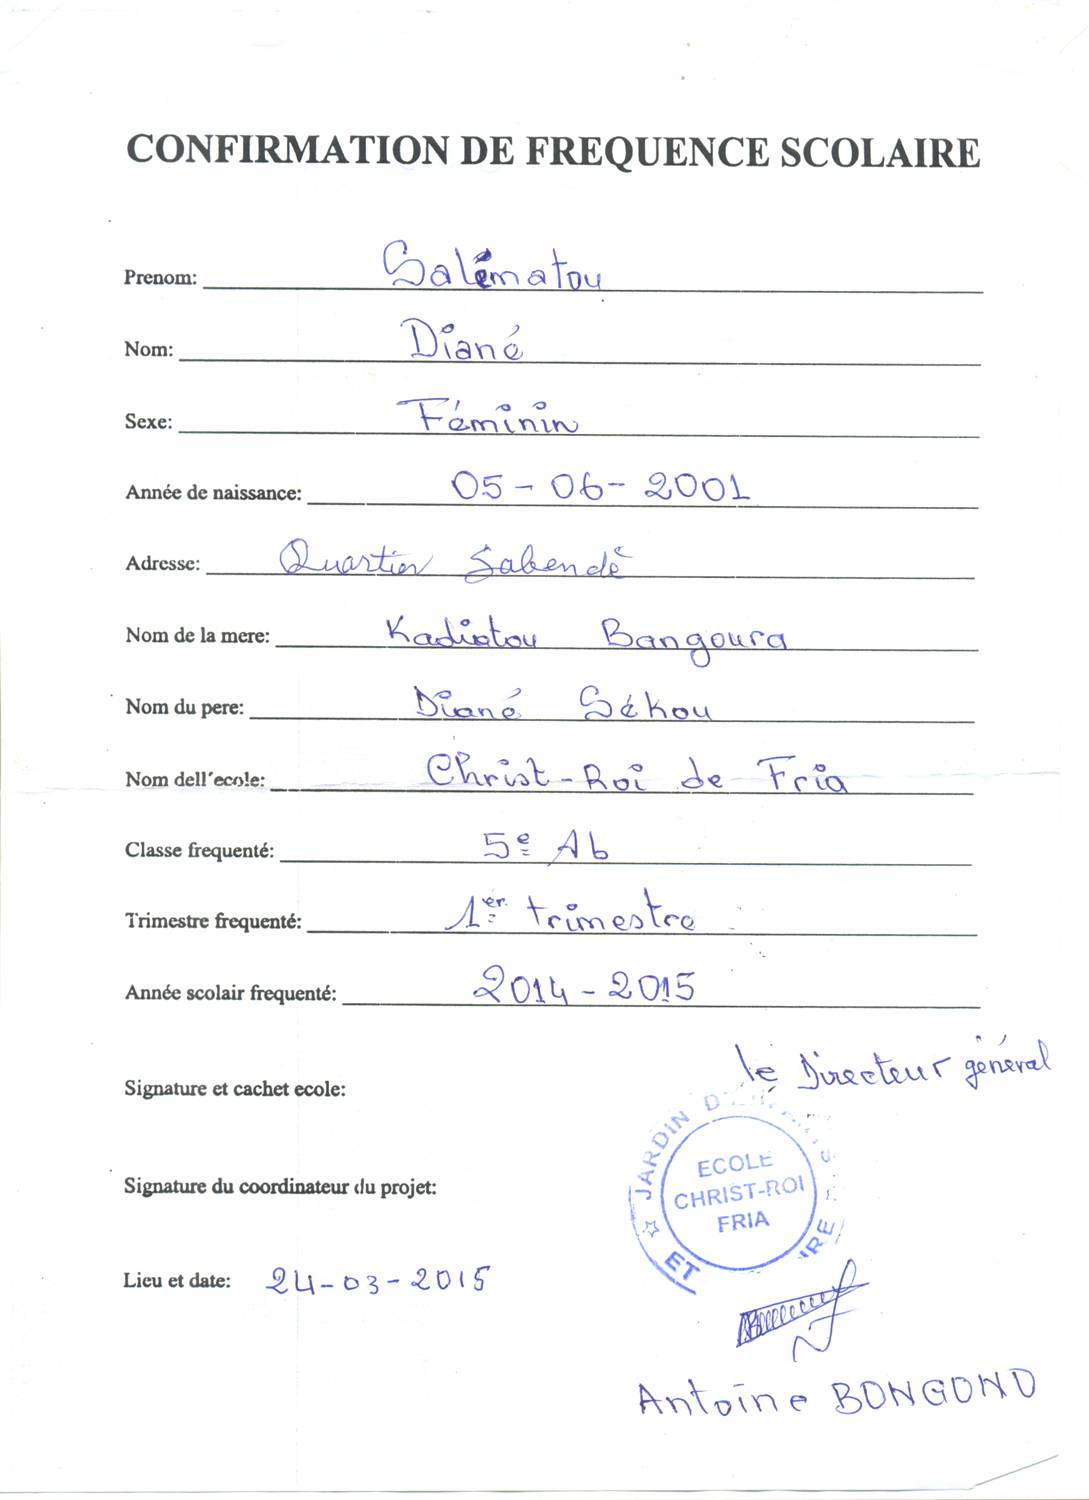 CONFIRMATION DE FREQUENCE SCOLAIRE
Prenom: Salématou
Nom: Diané
Sexe: Féminin
Année de naissance: 05-06-2001
Adresse: Quartier Sabendè
Nom de la mere: Kadiatou Bangoura
Nom du pere: Diané Sékou
Nom dell'ecole: Christ-Roi de Fria
Classe frequenté: 5e Ab
Trimestre frequenté: 1er trimestre
Année scolair frequenté: 2014-2015
le Directeur général
Signature et cachet ecole:
JARDIN
ECOLE
CHRIST-ROI
FRIA
ET
Signature du coordinateur du projet:
Lieu et date: 24-03-2015
Antoine BONGONO